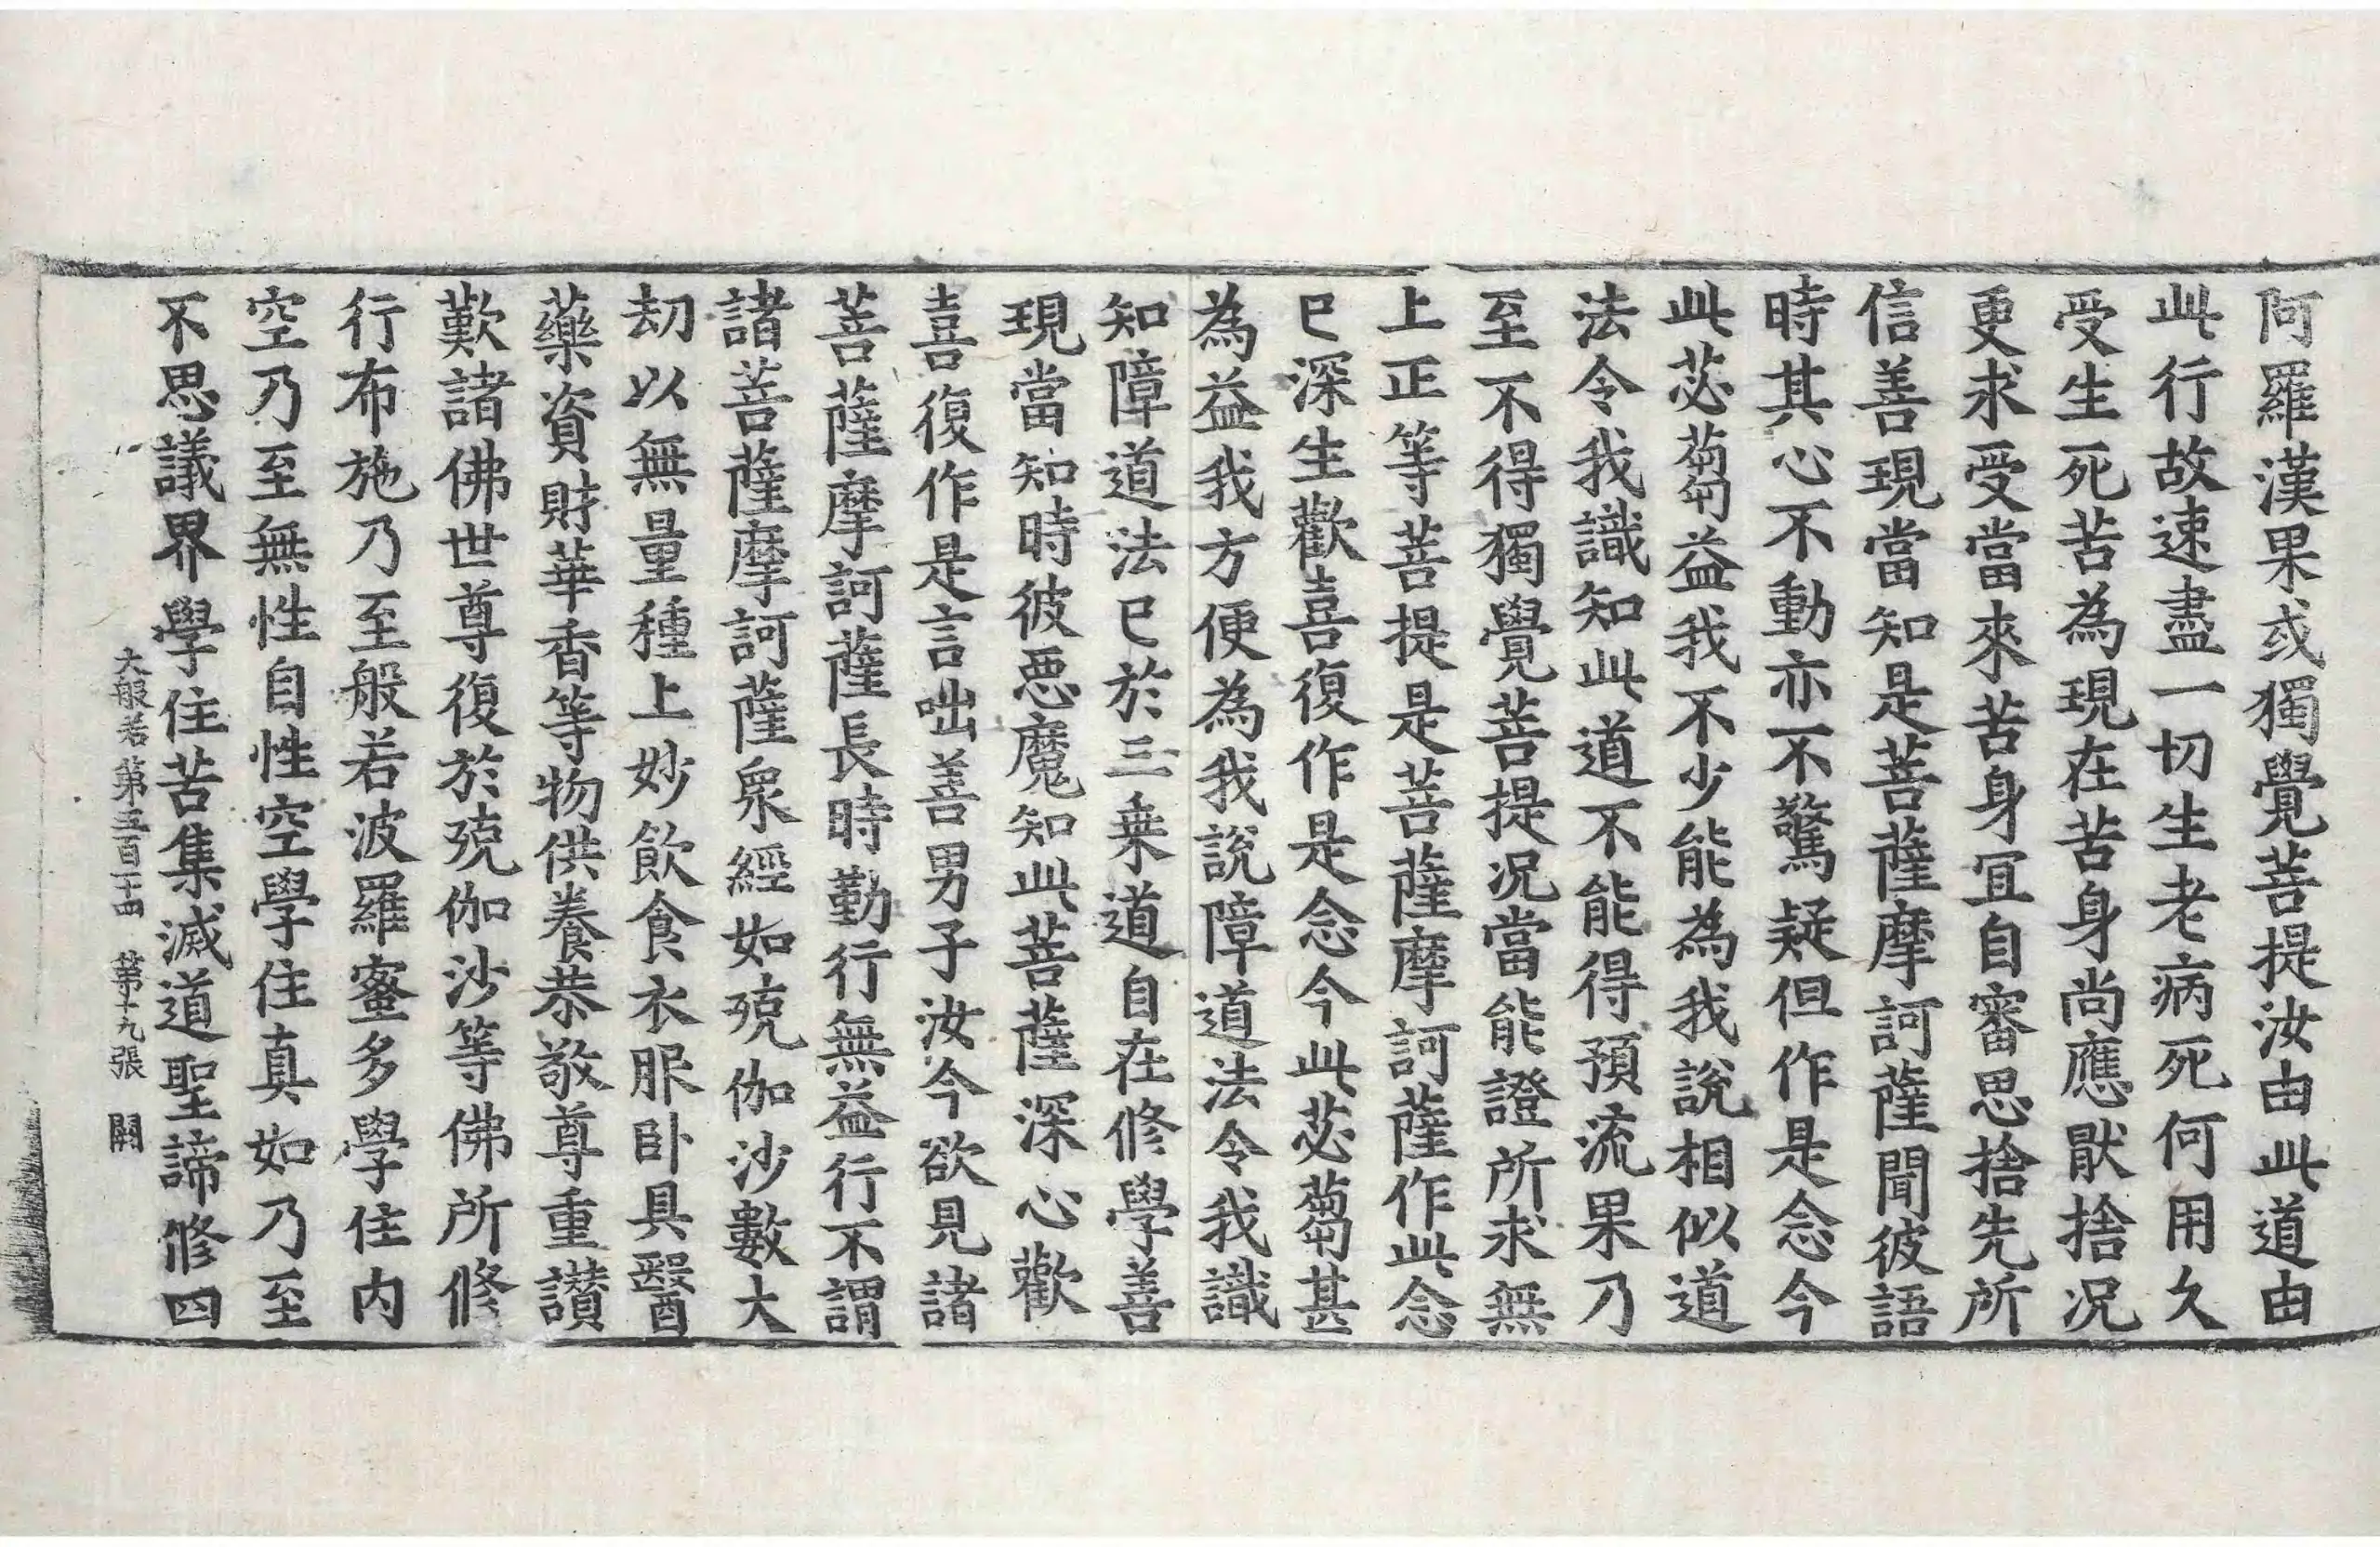 阿羅漢果或獨覺菩提汝由此道由
此行故速盡一切生老病死何用久
受生死苦為現在苦身尚應猒捨况
更求受當來苦身冝自審思捨先所
信善現當知是菩薩摩訶薩聞彼語
時其心不動亦不驚疑但作是念今
此苾蒭益我不少能為我說相似道
法令我識知此道不能得預流果乃
至不得獨覺菩提况當能證所求無
上正等菩提是菩薩摩訶薩作此念
已深生歡喜復作是念今此苾蒭甚
為益我方便為我說障道法令我識
知障道法已於三乗道自在修學善
現當知時彼惡魔知此菩薩深心歡
喜復作是言咄善男子汝今欲見諸
菩薩摩訶薩長時勤行無益行不謂
諸菩薩摩訶薩衆經如殑伽沙數大
劫以無量種上妙飲食衣服卧具醫
藥資財華香等物供養恭敬尊重讚
歎諸佛世尊復於殑伽沙等佛所修
行布施乃至般若波羅蜜多學住内
空乃至無性自性空學住真如乃至
不思議界學住苦集滅道聖諦修四
大般若第五百二十四 第十九張 闕